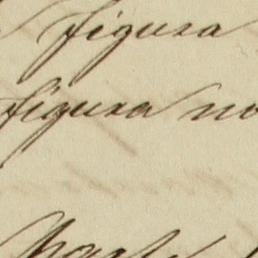 figura
figura no